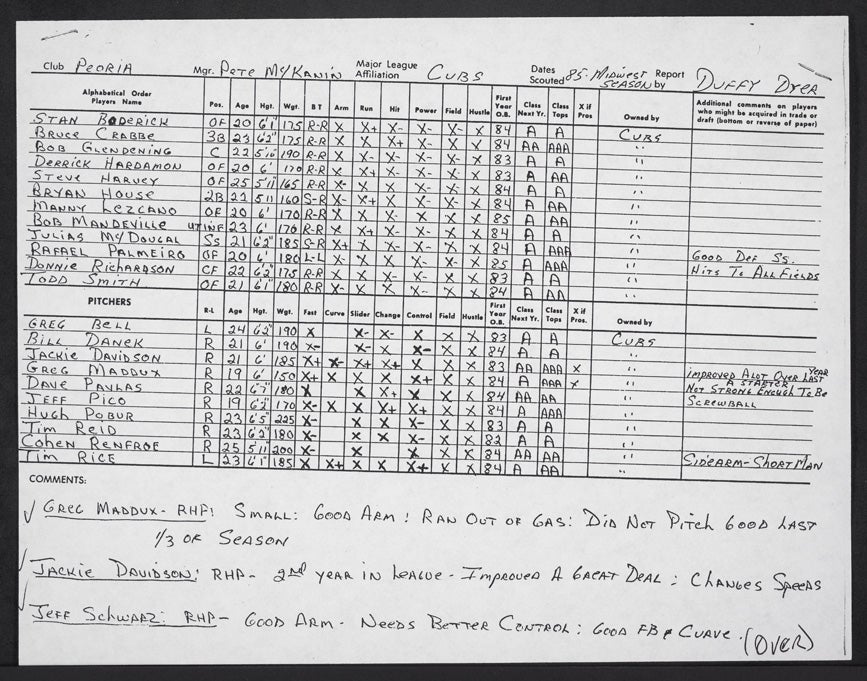 Club PEORIA Mgr. PETE MacKANIN Major League Affiliation CUBS Dates Scouted 85-MIDWEST SEASON Report by DUFFY DYER
Alphabetical Order Players Name Pos. Age Hgt. Wgt. B T Arm Run Hit Power Field Hustle First Year O.B. Class Next Yr. Class Tops X if Pros Owned by Additional comments on players who might be acquired in trade or draft (bottom or reverse of paper)
STAN BODERICK OF 20 6'1 175 R-R X X+ X- X- X- X 84 A A CUBS
BRUCE CRABBE 3B 23 6'2" 175 R-R X X X+ X- X X 84 AA AAA "
BOB GLENDENING C 22 5'10" 190 R-R X X- X- X- X X 83 A A "
DERRICK HARDAMON OF 20 6' 170 R-R X X+ X- X- X X 83 A AA "
STEVE HARVEY OF 25 5'11" 165 R-R X- X X- X- X X 84 A A "
BRYAN HOUSE 2B 22 5'11 160 S-R X- X+ X X- X X 84 A AA "
MANNY LEZCANO OF 20 6' 170 R-R X X X- X X X 85 A AA "
BOB MANDEVILLE UTINF 23 6' 170 R-R X X+ X- X- X X 84 A A "
JULIAS McDOUGAL SS 21 6'2" 185 S-R X+ X X- X- X X 84 A AAA " GOOD DEF SS.
RAFAEL PALMEIRO OF 20 6' 180 L-L X X X X- X X 85 A AAA " HITS TO ALL FIELDS
DONNIE RICHARDSON CF 22 6'2" 175 R-R X X X- X- X X 83 A A "
TODD SMITH OF 21 6'1" 180 R-R X- X X X- X X 84 A AA "
PITCHERS R-L Age Hgt. Wgt. Fast Curve Slider Change Control Field Hustle First Year O.B. Class Next Yr. Class Tops X if Pros. Owned by
GREG BELL L 24 6'2" 190 X X- X- X X X 83 A A CUBS
BILL DANEK R 21 6' 190 X- X- X X- X X 84 A A "
JACKIE DAVIDSON R 21 6' 185 X+ X- X+ X+ X X X 83 AA AAA X " IMPROVED ALOT OVER LAST YEAR
GREG MADDUX R 19 6' 150 X+ X X X X+ X X 84 A AAA X " NOT STRONG ENOUGH TO BE A STARTER
DAVE PAVLAS R 22 6'7" 180 X X X+ X X X 84 AA AA " SCREWBALL
JEFF PICO R 19 6'2" 170 X- X X X+ X+ X X 84 A AAA "
HUGH POBUR R 23 6'5" 225 X- X X X- X X 83 A A "
TIM REID R 23 6'2" 180 X- X X X- X X 82 A A "
COHEN RENFROE R 25 5'11 200 X- X X X X 84 AA AA "
TIM RICE L 23 6'1" 185 X X+ X X X+ X X 84 A AA " SIDEARM-SHORT MAN
COMMENTS:
√ GREG MADDUX- RHP: SMALL: GOOD ARM: RAN OUT OF GAS: DID NOT PITCH GOOD LAST
1/3 OF SEASON
√ JACKIE DAVIDSON: RHP- 2nd YEAR IN LEAGUE - IMPROVED A GREAT DEAL: CHANGES SPEEDS
√ JEFF SCHWARZ: RHP- GOOD ARM- NEEDS BETTER CONTROL: GOOD FB & CURVE.
(OVER)